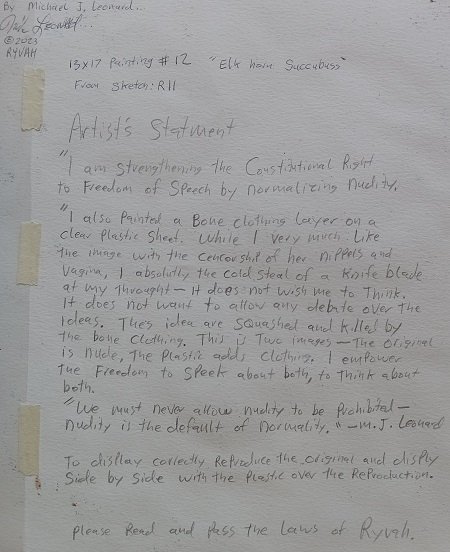 By Michael J. Leonard...
©2023
RYVAH
13x17 Painting #12 "Elk horn Succubuss"
From Sketch: R11
Artist's Statment
"I am strengthening the Constitutional Right
to Freedom of Speech by normalizing nudity.
"I also Painted a Bone clothing layer on a
clear Plastic sheet. While I very much Like
the image with the censorship of her nippels and
vagina, I absolutly the cold steal of a knife blade
at my throught – It does not wish me to Think.
It does not want to allow any debate over the
Ideas. Thes idea are squashed and killed by
the bone clothing. This is Two images – The original
is nude, The Plastic adds clothing. I empower
the Freedom to Speek about both, to Think about
both.
"We must never allow nudity to be prohibited –
nudity is the default of normality." – M. J. Leonard
To display correctly Reproduce the original and disply
Side by Side with the Plastic over the Reproduction.
Please Read and Pass the Laws of Ryvah.